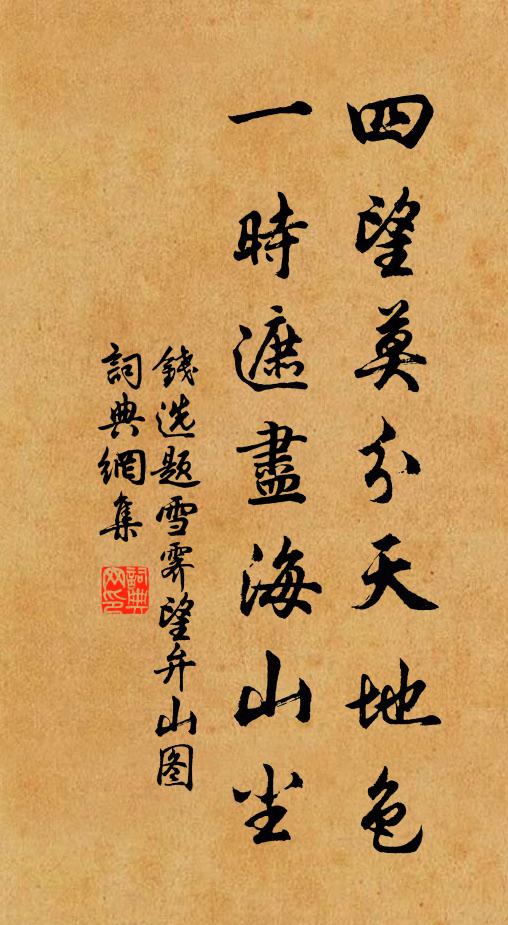 四望莫分天地色
一時遮盡海山尘
錢选题雪霁望弁山图
詞典網集
詞典网印